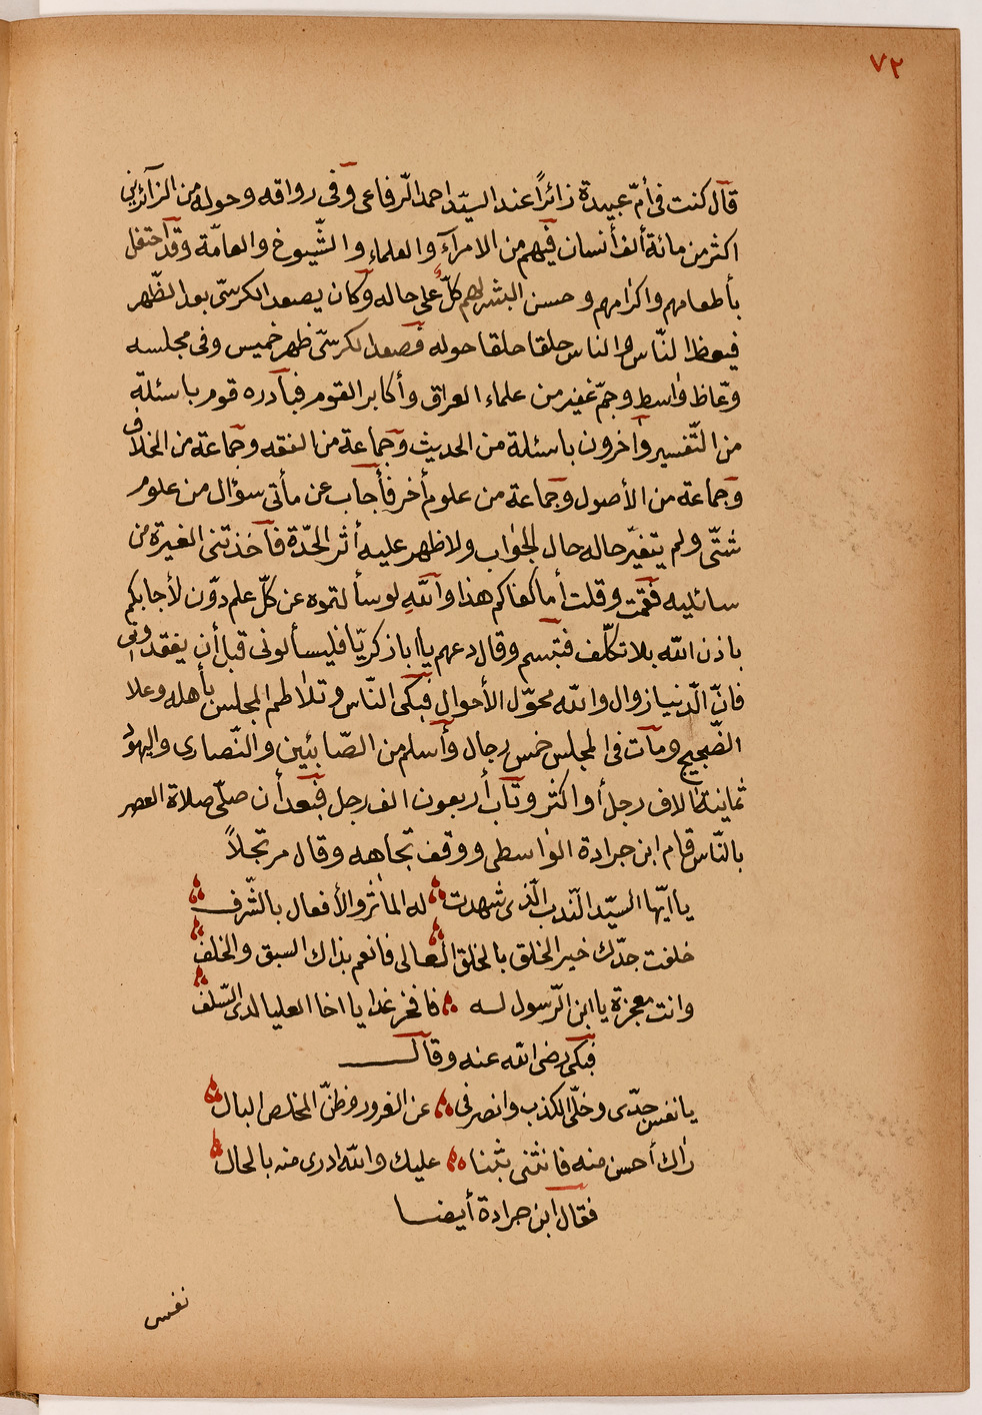 ٧٢
قال كنت فى أمّ عبيدة زائراً عند السيّد احمد الرّفاعى وفى رواقه وحوله من الزآئرين
اكثر من مائة ألف أنسان فيهم من الامرآء والعلماء والشّيوخ والعامّة وقد احتفل
بأطعامهم واكرامهم وحسن البشر لهم كلّ على حاله وكان يصعد الكرسىّ بعد الظّهر
فيعظ النّاس والناس حلقا حلقا حوله فصعد الكرسىّ ظهر خميس وفى مجلسه
وعّاظ واسط وجمّ غفير من علماء العراق وأكابر القوم فبادره قوم باسئلة
من التّفسير وآخرون باسئلة من الحديث وجماعة من الفقه وجماعة من الخلاف
وجماعة من الأصول وجماعة من علوم أخر فأجاب عن مأتى سؤال من علوم
شتّى ولم يتغيّر حاله حال الجواب ولا ظهر عليه أثر الحدّة فآخذتنى الغيرة من
سائليه فقمت وقلت أما كفاكم هذا والله لو سألتموه عن كلّ علم دوّن لأجابكم
باذن الله بلا تكلّف فتبسم وقال دعهم يا أبا ذكريّا فليسألونى قبل أن يفقدونى
فانّ الدّنيا زوال والله محوّل الأحوال فبكى النّاس وتلاطم المجلس بأهله وعلا
الضّجيج ومآت فى المجلس خمس رجال وأسلم من الصّابئين والنّصارى واليهود
ثمانية آلاف رجل أو اكثر وتاب أربعون الف رجل فبعد أن صلّى صلاة العصر
بالنّاس قام ابن جرادة الواسطى ووقف تجاهه وقال مرتجلاً
يا ايّها السيّد النّدب الّذى شهدت له المآثر والأفعال بالشّرف
خلفت جدّك خير الخلق بالخلق العالى فانعم بذاك السبق والخلف
وانت معجزة يا ابن الرّسول له فافخر غدا يا اخا العليا لدى السّلف
فبكى رضى الله عنه وقال
يا نفس جدّى وخلّى الكذب وانصرفى عن الغرور وظنّ المخلص البال
راك أحسن منه فانثنى بثنا عليك والله ادرى منه بالحال
فقال ابن جرادة أيضا
نفس